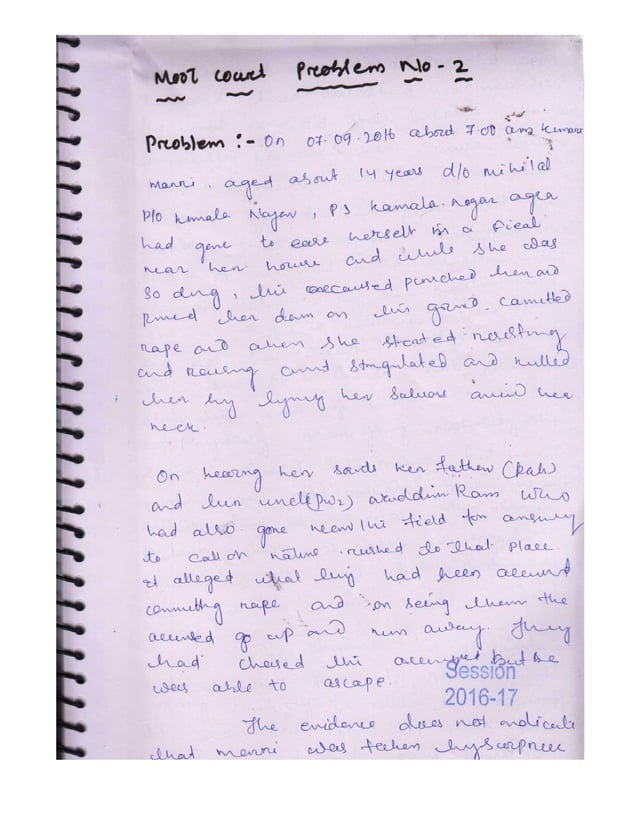 Moot Court Problem No - 2
Problem :- On 07.09.2016 about 7.00 am Kumari
manni, aged about 14 years d/o
P/o Kamala Nagar, PS Kamala nagar agra
had gone to ease herself in a
near her house and while she was
so doing, the accused her and
her down on the ground. Comitted
rape and when she started resisting
and and strangulated and killed
her by her around her
neck.
On hearing her her father
and her uncle (PW2) Ram who
had also gone near the field for
to call of nature rushed to that place.
It alleged what they had seen accused
committing rape and on seeing them the
accused up and run away. They
had chased the accused But he
was able to ascape.
Session
2016-17
The evidence does not indicate
that manni was by